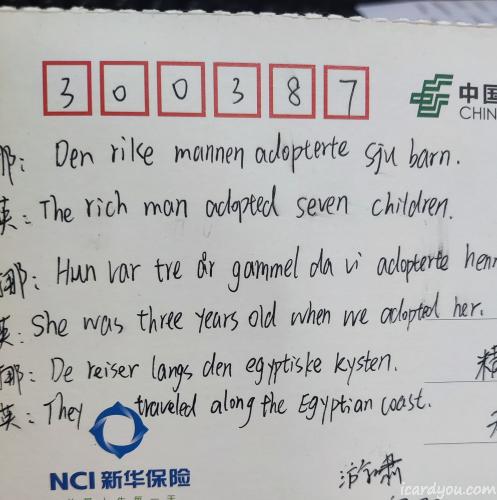 300387
中国
CHIN
挪: Den rike mannen adopterte sju barn.
英: The rich man adopted seven children.
挪: Hun var tre år gammel da vi adopterte henn
英: She was three years old when we adopted her.
挪: De reiser langs den egyptiske kysten.
英: They traveled along the Egyptian coast.
NCI 新华保险
icardyou.com